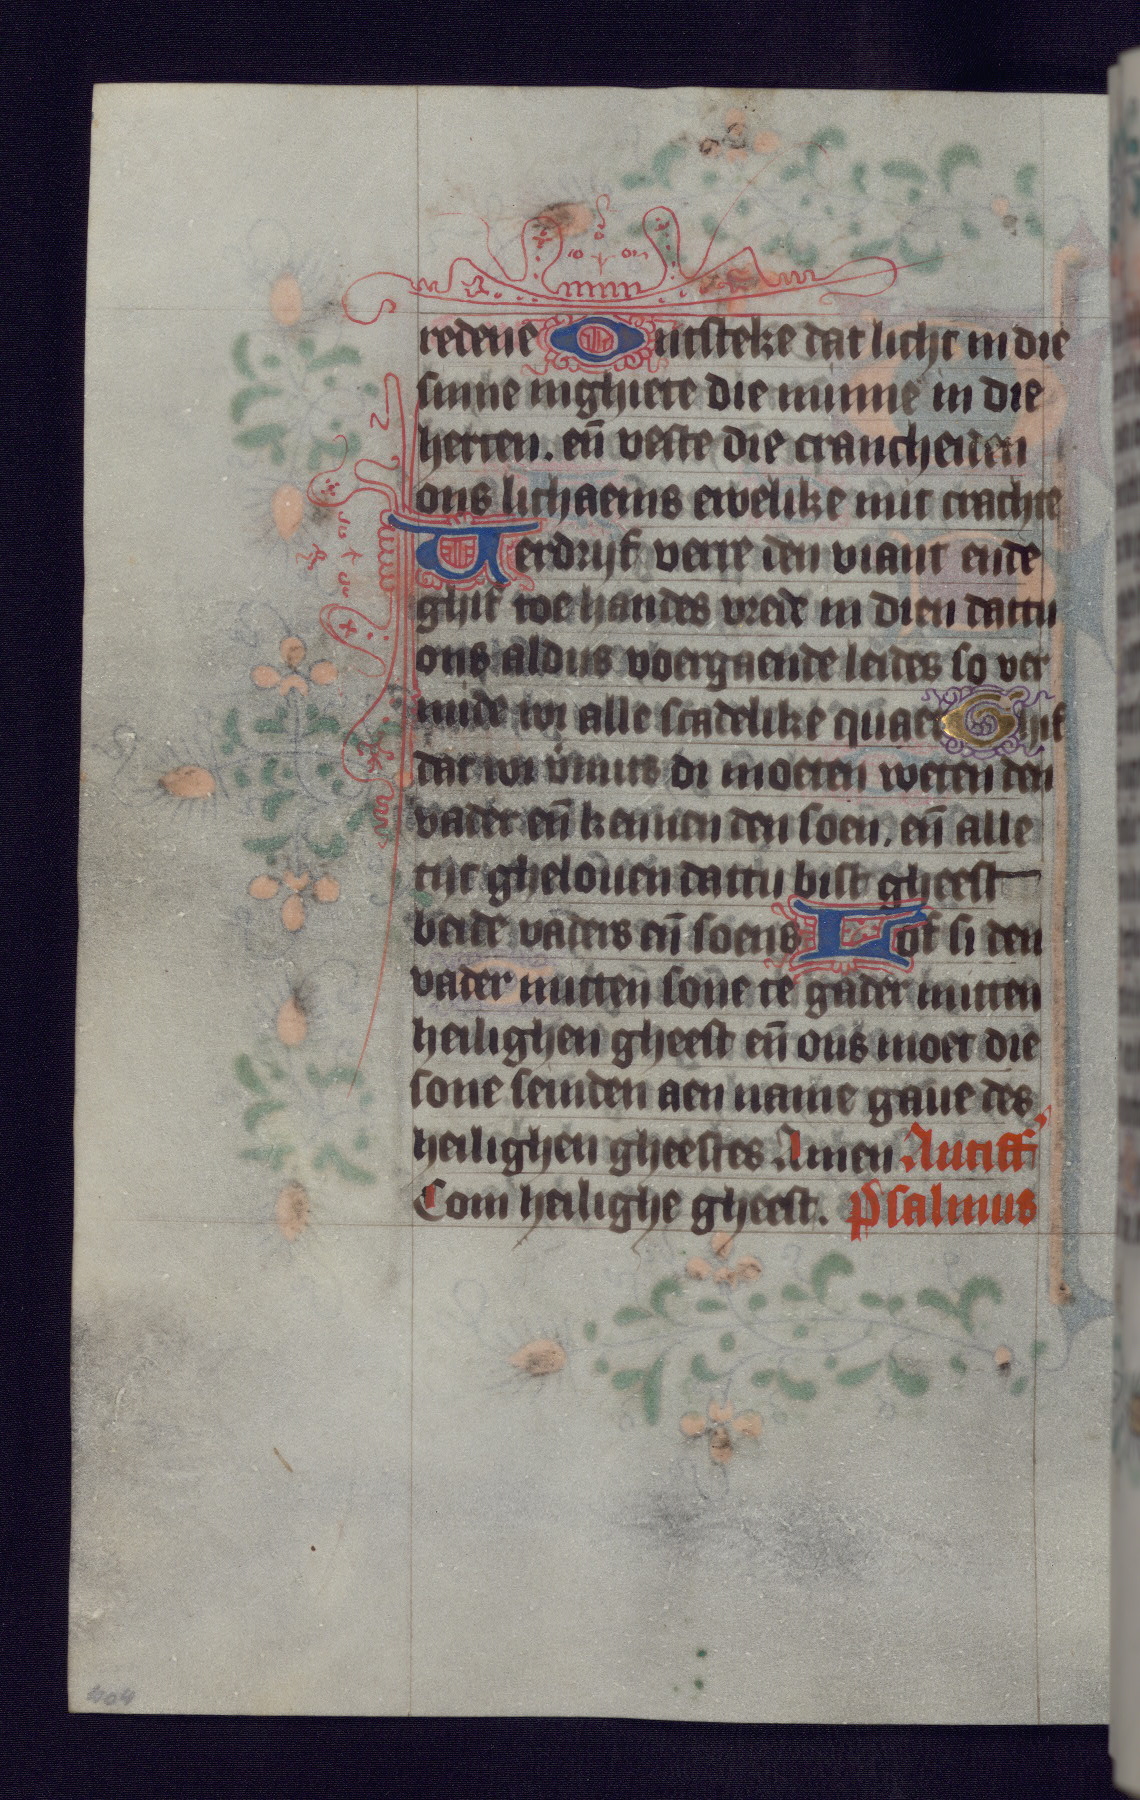 redene Ontsteke dat licht in die
sinne inghiete die minne in die
herten. eñ veste die crancheiden
ons lichaems ewelike mit crachte
Verdrijf verre den viant ende
ghif toe handes vrede in dien dattu
ons aldus voergaende leides so ver
mide wi alle scadelike quaet Ghif
dat wi vmits di moeten weten den
vader eñ kennen den soen. eñ alle
tijt ghelouen dattu bist gheest
beide vaders eñ soens Lof si den
vader mitten sone te gader mitten
heilighen gheest eñ ons moet die
sone seinden aen name gaue des
heilighen gheestes Amen Antiff'
Com heilighe gheest. Psalmus
404